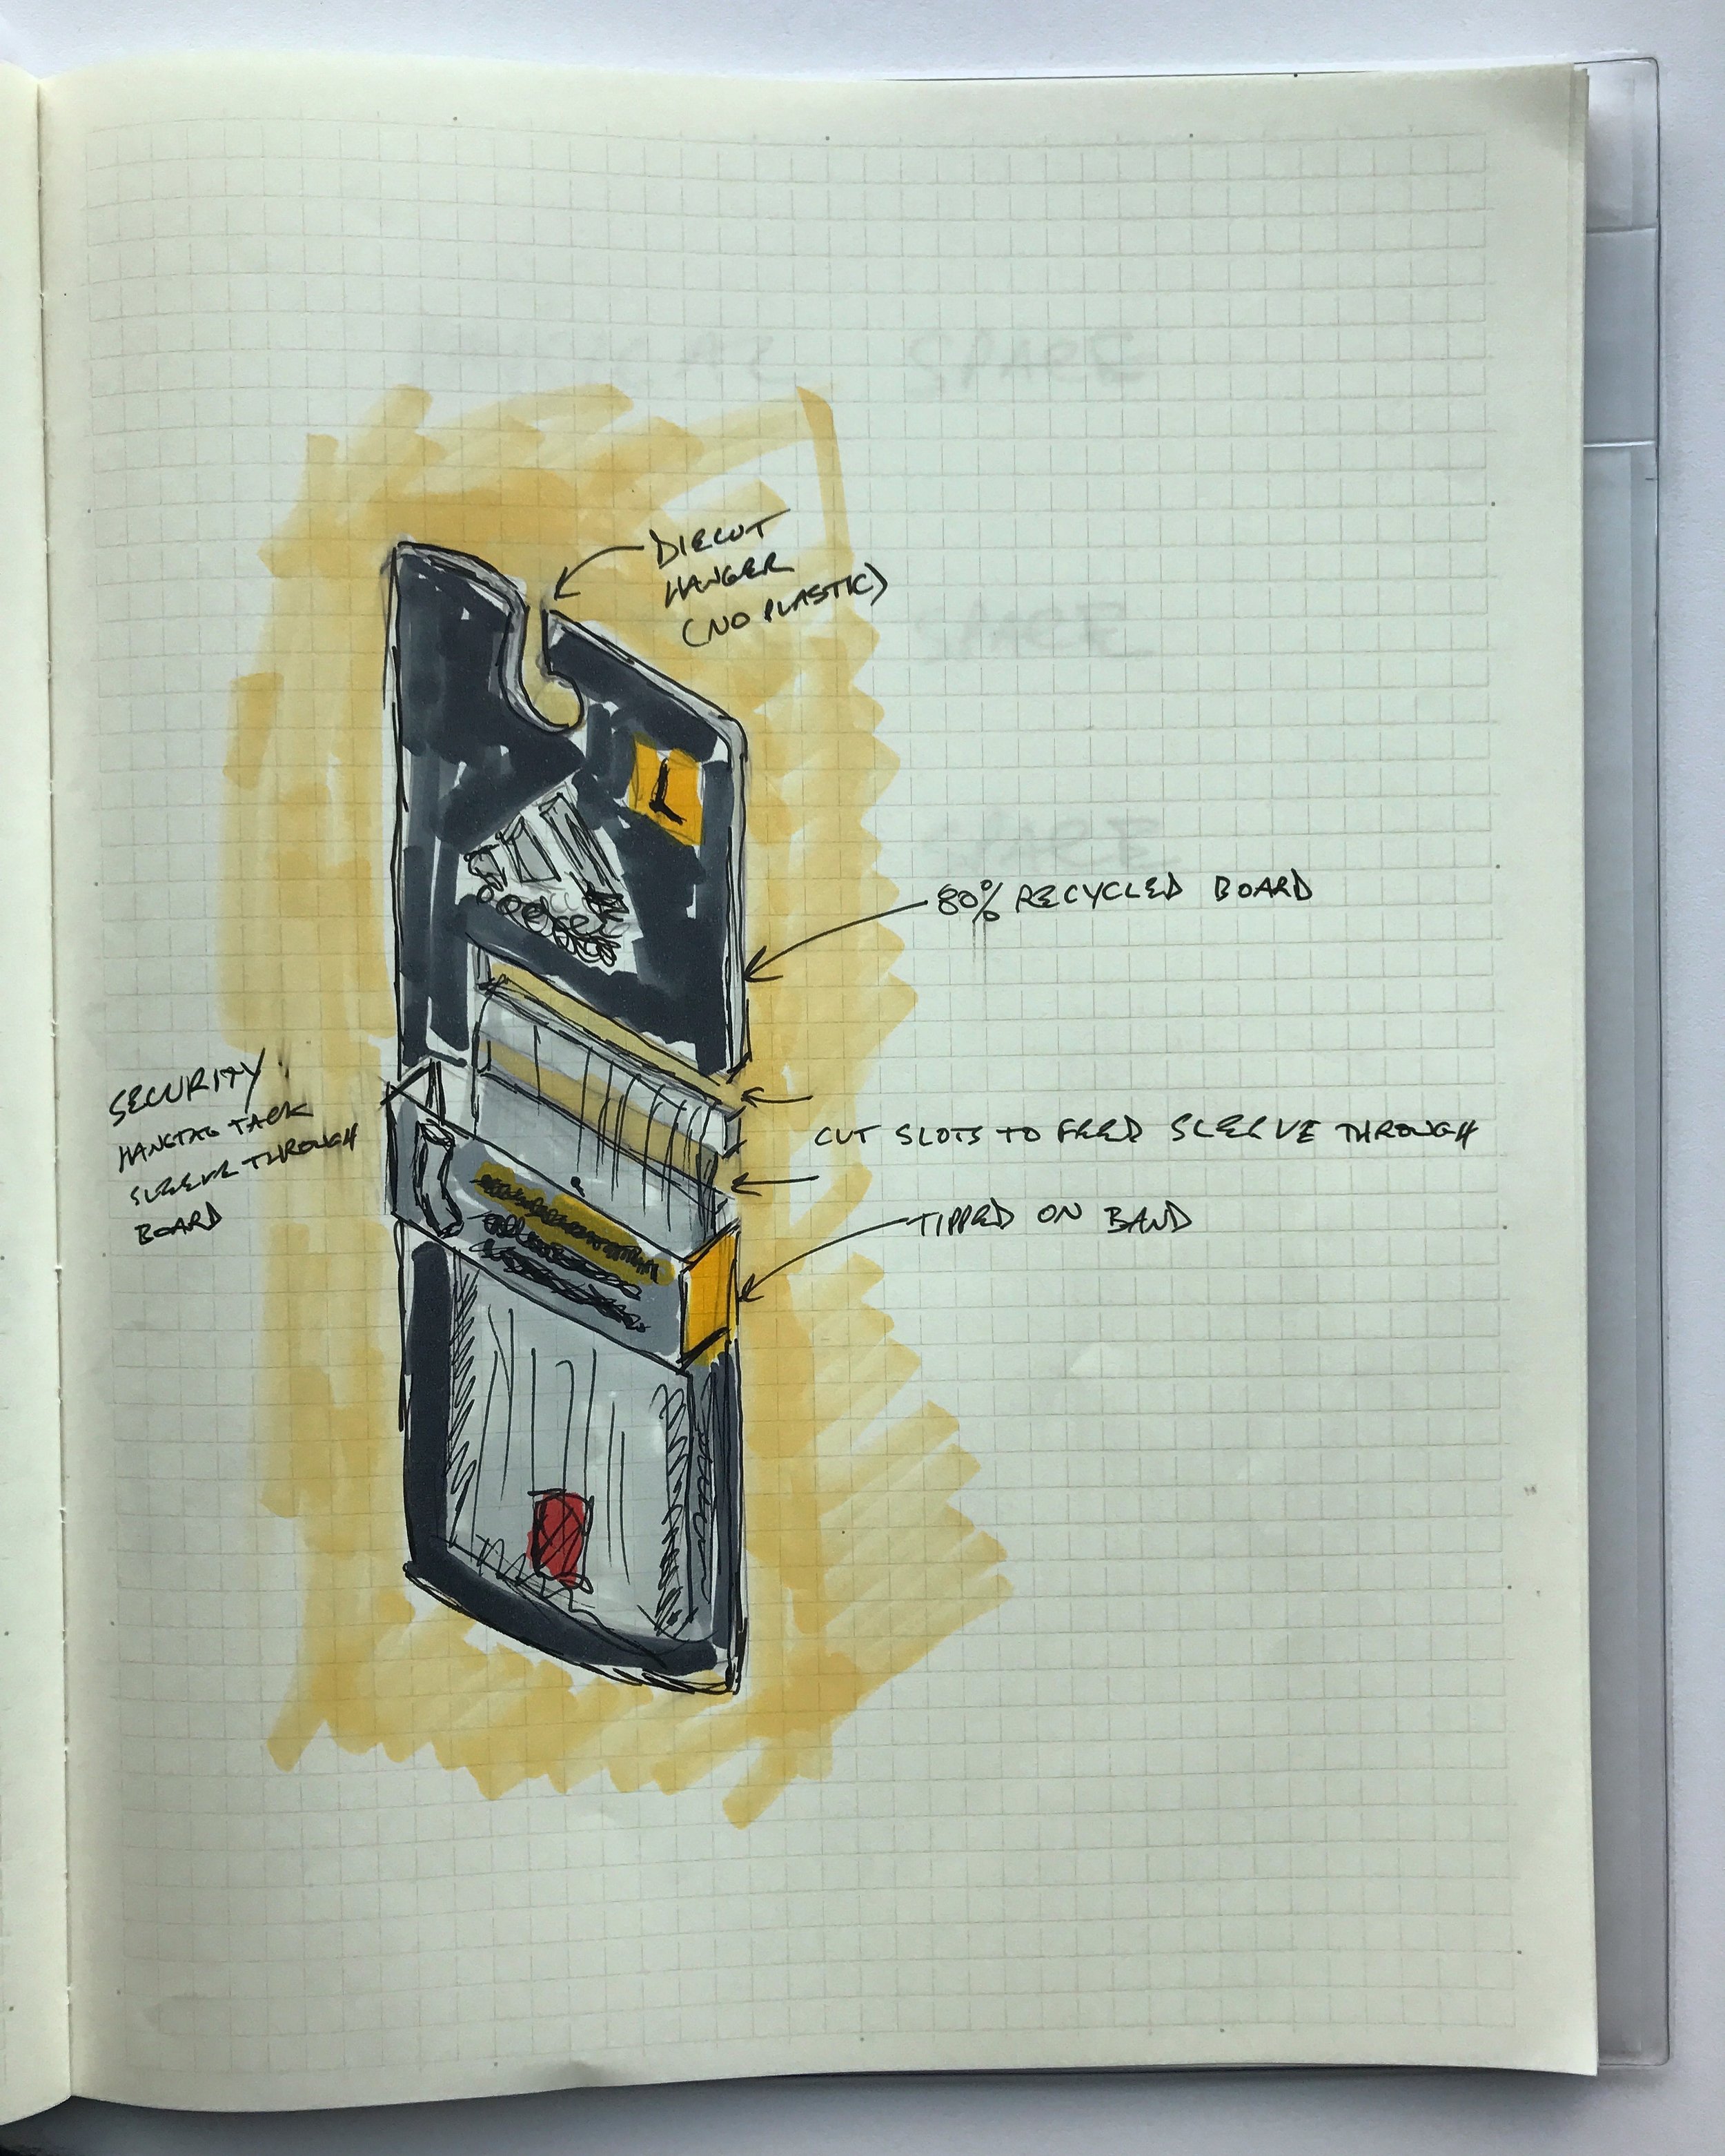 DIECUT
HANGER
(NO PLASTIC)
L
80% RECYCLED BOARD
SECURITY
HANGTAG TACK
SLEEVE THROUGH
BOARD
CUT SLOTS TO FEED SLEEVE THROUGH
TIPPED ON BAND
SPARE
SPARE
SPARE